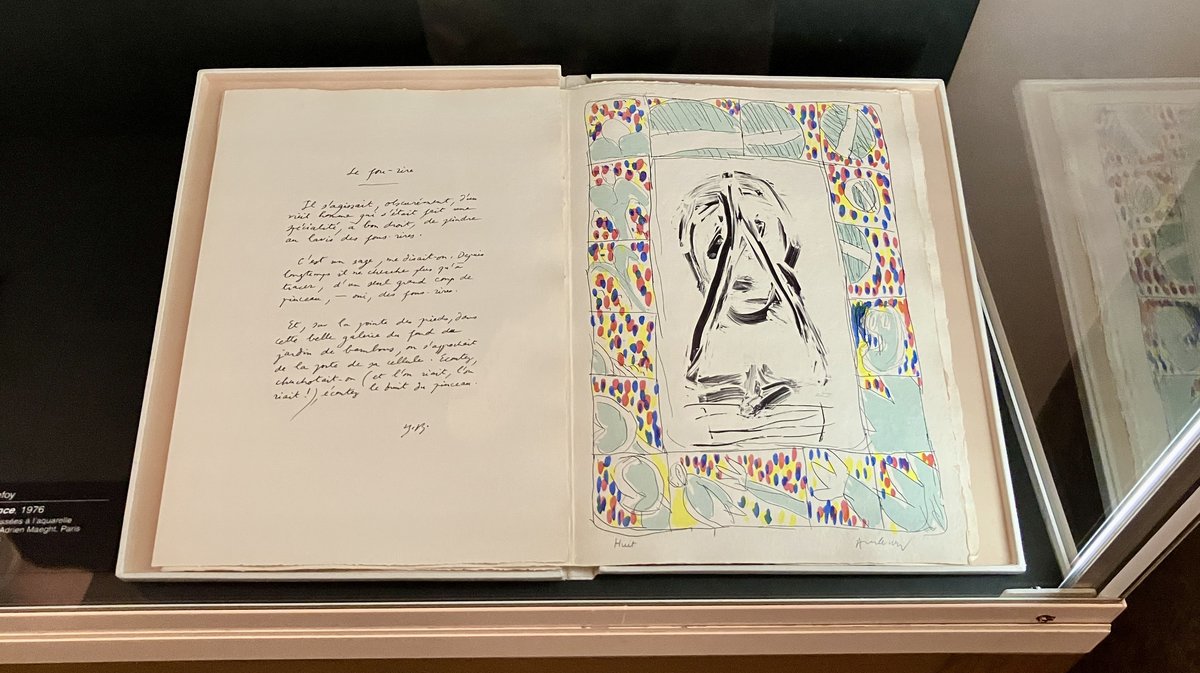 Le fou-rire
Il s'agissait, obscurément, d'un
vieil homme qui s'était fait une
spécialité, à bon droit, de peindre
au lavis des fous-rires.
C'est un sage, me disait-on. Depuis
longtemps il ne cherche plus qu'à
tracer, d'un seul grand coup de
pinceau, — oui, des fous-rires.
Et, sur la pointe des pieds, dans
cette belle galerie du fond du
jardin de bambous, on s'approchait
de la porte de sa cellule. Écoutez,
chuchotait-on (et l'on riait, l'on
riait !), écoutez le bruit du pinceau.
y.B.
Huit
efoy
nce, 1976
ssées à l'aquarelle
Adrien Maeght, Paris